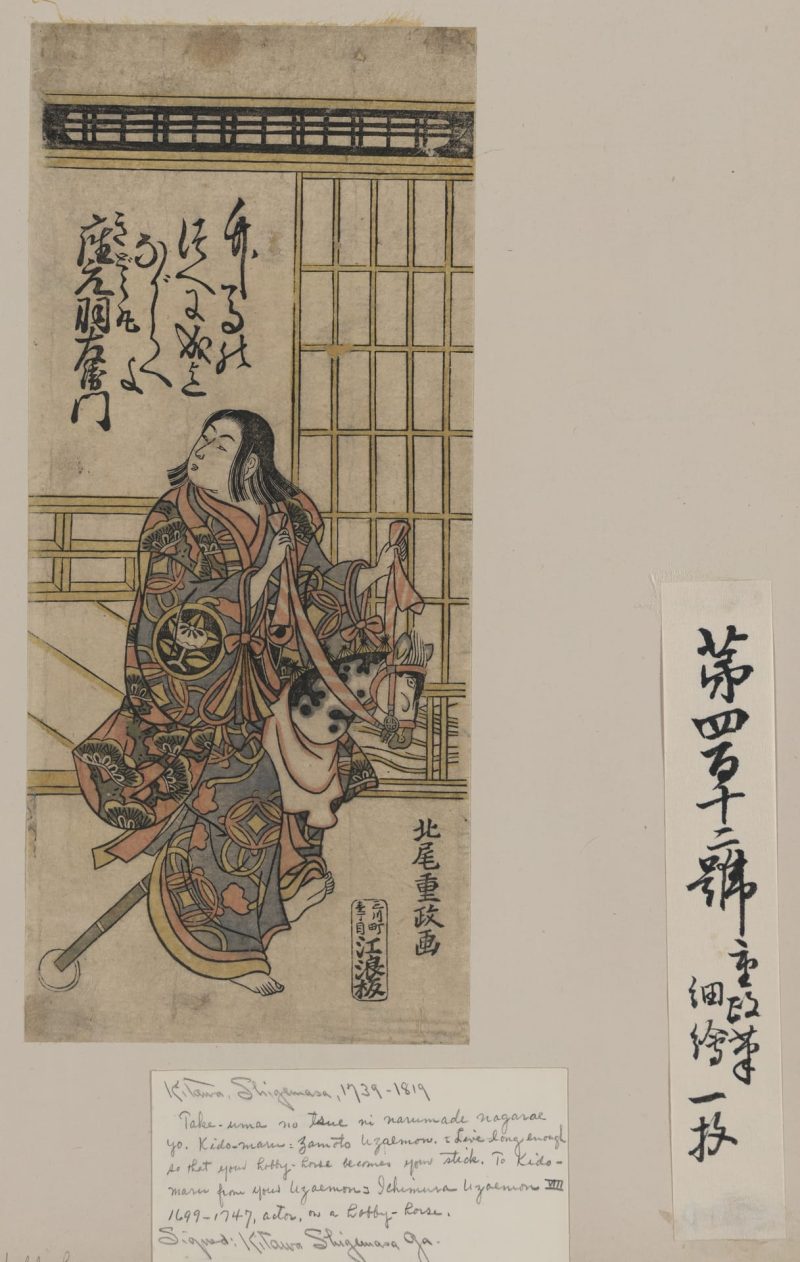 竹馬の
つえに成迄
ながらへよ
きどう丸
座元羽左衛門
北尾重政画
三川町
壱丁目
江浪板
第四百十二號
重政筆
細繪一枚
Kitawo, Shigemasa, 1739-1819
Take-uma no tsue ni narumade nagarae
yo. Kido-maru: Zamoto Uzaemon. = Live long enough
so that your hobby-horse becomes your stick. To Kido-
maru from your Uzaemon = Ichimura Uzaemon VIII
1699-1747, actor, on a hobby-horse.
Signed: Kitawo Shigemasa ga.